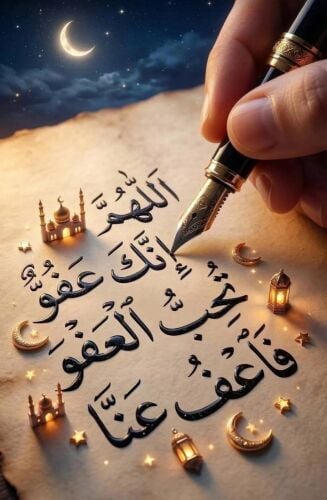 اَللّٰهُمَّ
إِنَّكَ عَفُوٌّ
تُحِبُّ الْعَفْوَ
فَاعْفُ عَنَّا